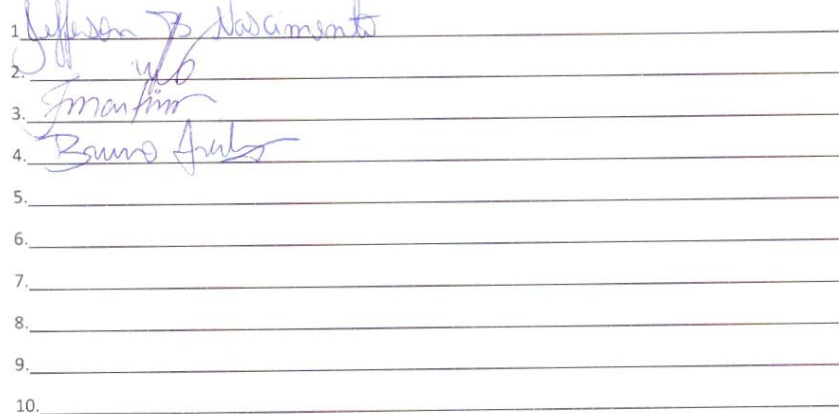 1. Jefferson B Nascimento
2.
3.
4. Bruno
5.
6.
7.
8.
9.
10.